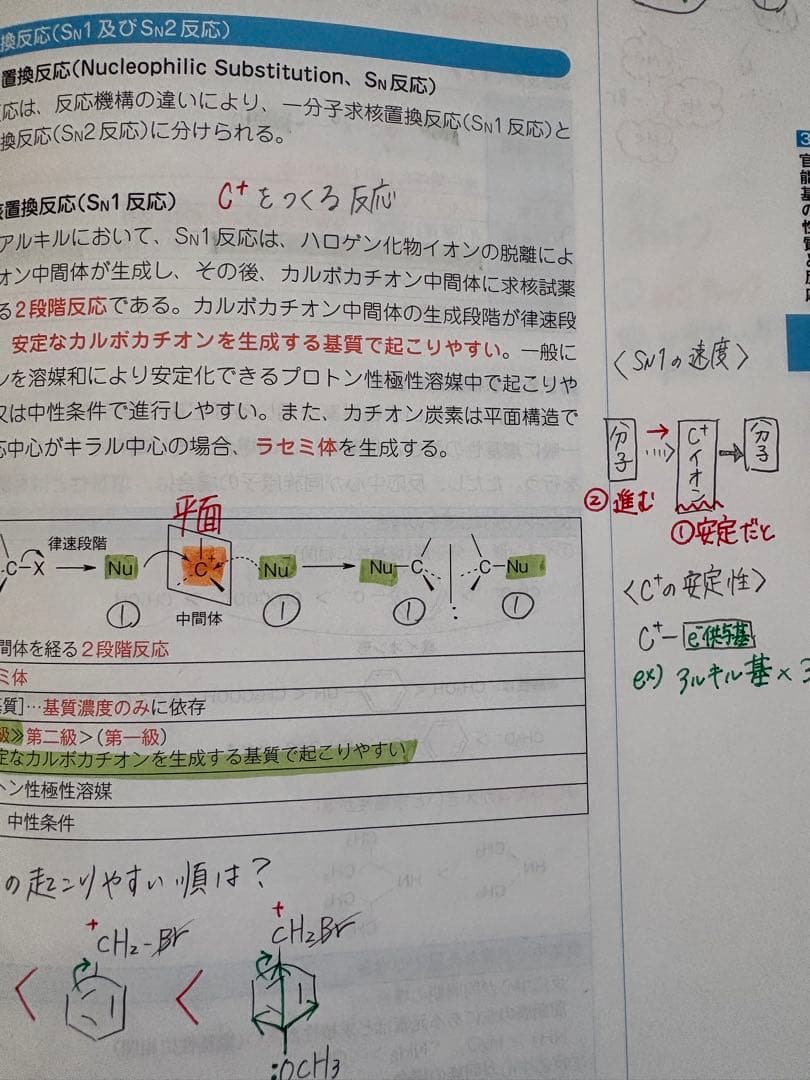 換反応(SN1及びSN2反応)
置換反応(Nucleophilic Substitution、SN反応)
応は、反応機構の違いにより、一分子求核置換反応(SN1反応)と
換反応(SN2反応)に分けられる。
核置換反応(SN1反応) C⁺をつくる反応
アルキルにおいて、SN1反応は、ハロゲン化物イオンの脱離によ
オン中間体が生成し、その後、カルボカチオン中間体に求核試薬
る2段階反応である。カルボカチオン中間体の生成段階が律速段
安定なカルボカチオンを生成する基質で起こりやすい。一般に
ンを溶媒和により安定化できるプロトン性極性溶媒中で起こりや
又は中性条件で進行しやすい。また、カチオン炭素は平面構造で
応中心がキラル中心の場合、ラセミ体を生成する。
平面
律速段階
C-X Nu C⁺ Nu⁻ Nu-C C-Nu
中間体
① ① ① ①
間体を経る2段階反応
ミ体
基質]…基質濃度のみに依存
級≫第二級>(第一級)
定なカルボカチオンを生成する基質で起こりやすい
トン性極性溶媒
中性条件
の起こりやすい順は?
+ +
CH2-Br CH2Br
< <
:OCH3
3
官能基の性質と反応
〈SN1の速度〉
分子 C⁺イオン 分子
②進む
①安定だと
〈C⁺の安定性〉
C⁺-e⁻供与基
ex) アルキル基×3